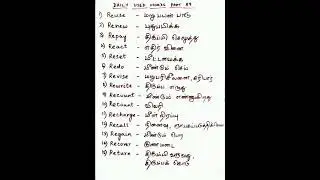 DAILY USED WORDS PART 89
1) Reuse - மறுபயன் பாடு
2) Renew - புதுப்பிக்க
3) Repay - திருப்பி செலுத்து
4) React - எதிர் வினை
5) Reset - மீட்டமைக்க
6) Redo - மீண்டும் செய்
7) Revise - மறுபரிசீலனை,
8) Rewrite - திருப்பி எழுது
9) Recount - மீண்டும்
10) Recount - விவரி
11) Recharge - மீள் நிரப்பு
12) Recall - நினைவு,
13) Regain - மீண்டும் பெற
14) Recover - குணமடை
15) Return - திரும்பி வருவது,
திருப்பக் கொடு